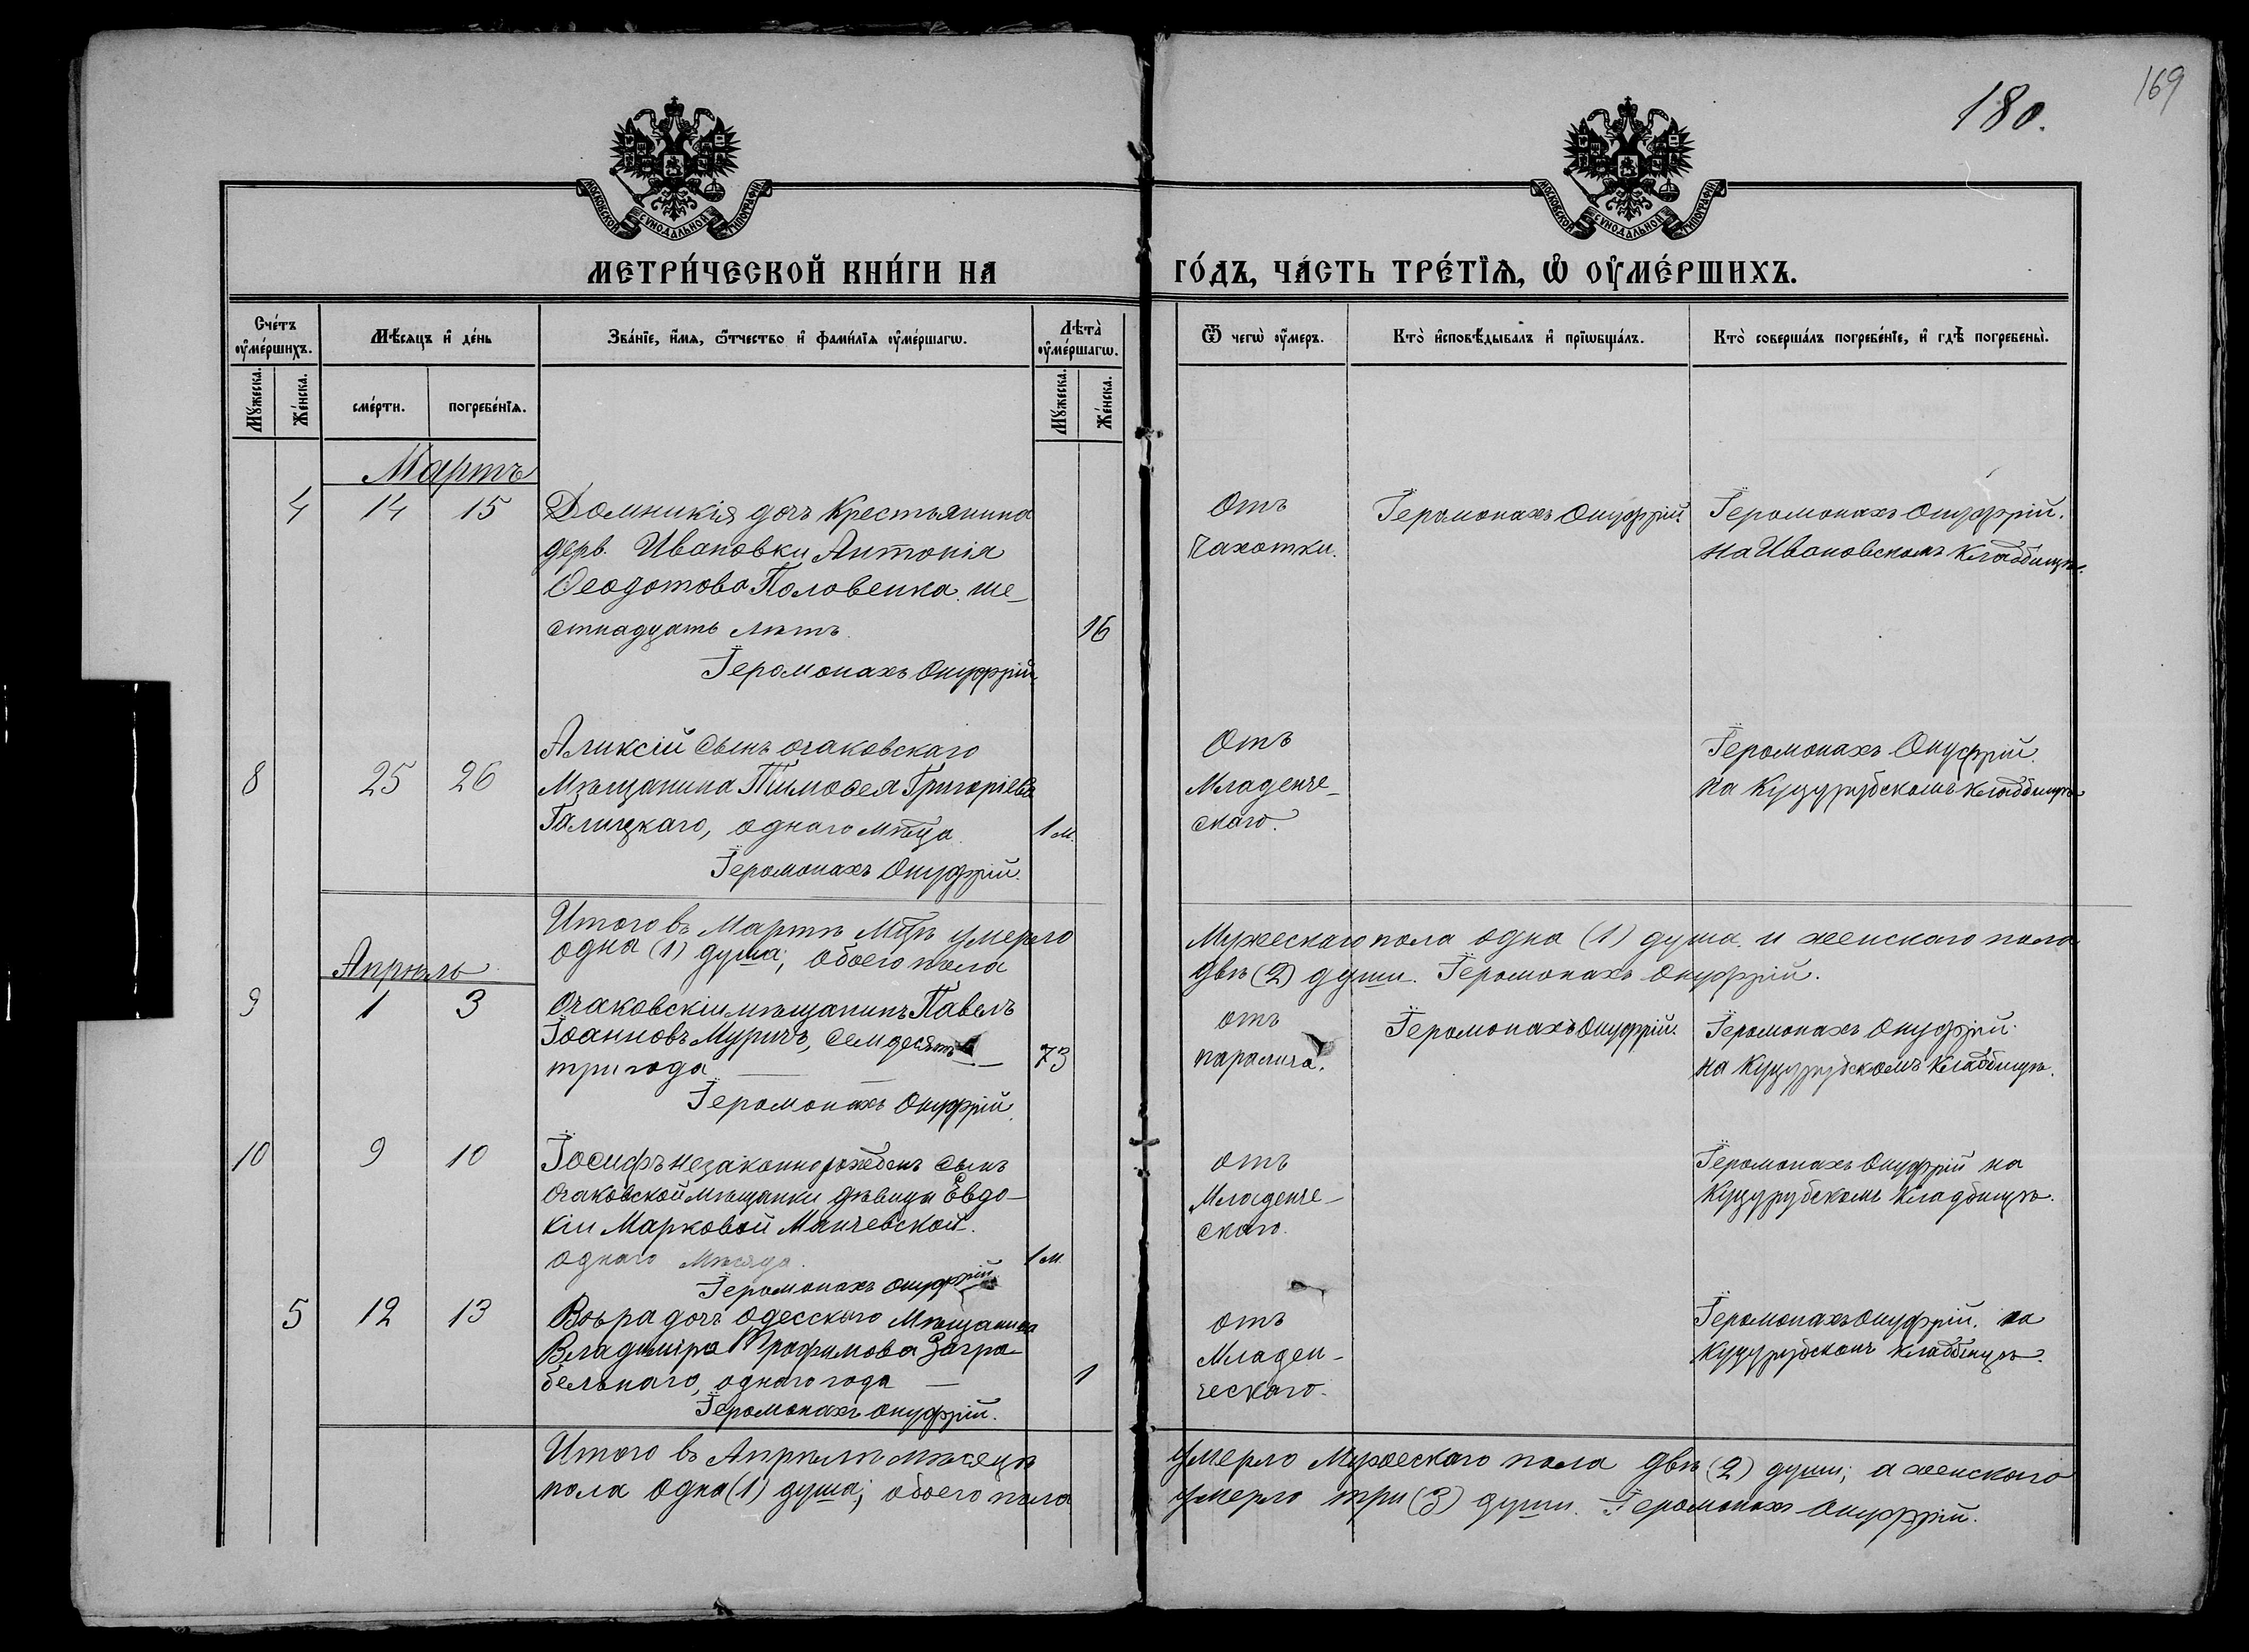 169
180.
МОСКОВСКОЙ СУНОДАЛЬНОЙ ТИПОГРАФІИ
МОСКОВСКОЙ СУНОДАЛЬНОЙ ТИПОГРАФІИ
МЕТРИ́ЧЕСКОЙ КНИ́ГИ НА
ГО́ДЪ, ЧА́СТЬ ТРЕ́ТІѦ, Ѡ҆ ОУ҆МЕ́РШИХЪ.
Сче́тъ оу҆ме́ршихъ.
Мѣ́сяцъ и҆ де́нь
Зва́нїе, и҆́мѧ, ѻ҆́тчество и҆ фамі́лїѧ оу҆ме́ршагѡ.
Лѣта̀ оу҆ме́ршагѡ.
Ѿ чегѡ̀ оу҆́меръ.
Кто̀ и҆сповѣ́дывалъ и҆ прїѡбща́лъ.
Кто̀ соверша́лъ погребе́нїе, и҆ гдѣ̀ погребены̀.
Мꙋ́жеска.
Же́нска.
сме́рти.
погребе́нїѧ.
Мꙋ́жеска.
Же́нска.
Мартъ
4 14 15 Домникія дочь Крестьянина
дерв. Ивановки Антонія
Ѳеодотова Половенка. ше-
стнадцать лѣтъ. 16
Іеромонахъ Онуфрій
Отъ
Чахотки.
Іеромонахъ Онуфрій.
Іеромонахъ Онуфрій.
на Ивановскомъ Кладбищѣ.
8 25 26 Аликсій сынъ очаковскаго
Мѣщанина Тимоѳея Григоріева
Галицкаго, одного мѣца. 1 м.
Іеромонахъ Онуфрій.
Отъ
Младенче-
скаго.
Іеромонахъ Онуфрій.
на Куцурубскомъ кладбищѣ
Итого въ Мартѣ Мцѣ умерло
Мужескаго пола одна (1) душа. и женскаго пола
одна (1) душа; обоего пола
двѣ (2) души. Іеромонахъ Онуфрій.
Апрѣль
9 1 3 Очаковскій мѣщанинъ Павелъ
Іоанновъ Муричъ, семдесятъ
три года 73
Іеромонахъ Онуфрій.
отъ
паралича.
Іеромонахъ Онуфрій.
Іеромонахъ Онуфрій.
на Куцурубскомъ Кладбищѣ.
10 9 10 Іосифъ незаконнорожденъ сынъ
Очаковской мѣщанки дѣвицы Евдо-
кіи Марковой Манчевской.
одного Мѣсяца. 1 м.
Іеромонахъ Онуфрій
отъ
Младенче-
скаго.
Іеромонахъ Онуфрій на
Куцурубскомъ Кладбищѣ.
5 12 13 Вѣра дочь Одесскаго Мѣщанина
Владиміра Трофимова Загра-
бельнаго, одного года 1
Іеромонахъ Онуфрій.
отъ
Младен-
ческаго.
Іеромонахъ Онуфрій. на
Куцурубскомъ кладбищѣ.
Итого въ Апрѣлѣ мѣсяцѣ
умерло Мужескаго пола двѣ (2) души; а женскаго
пола одна (1) душа; обоего пола
умерло три (3) души. Іеромонахъ Онуфрій.